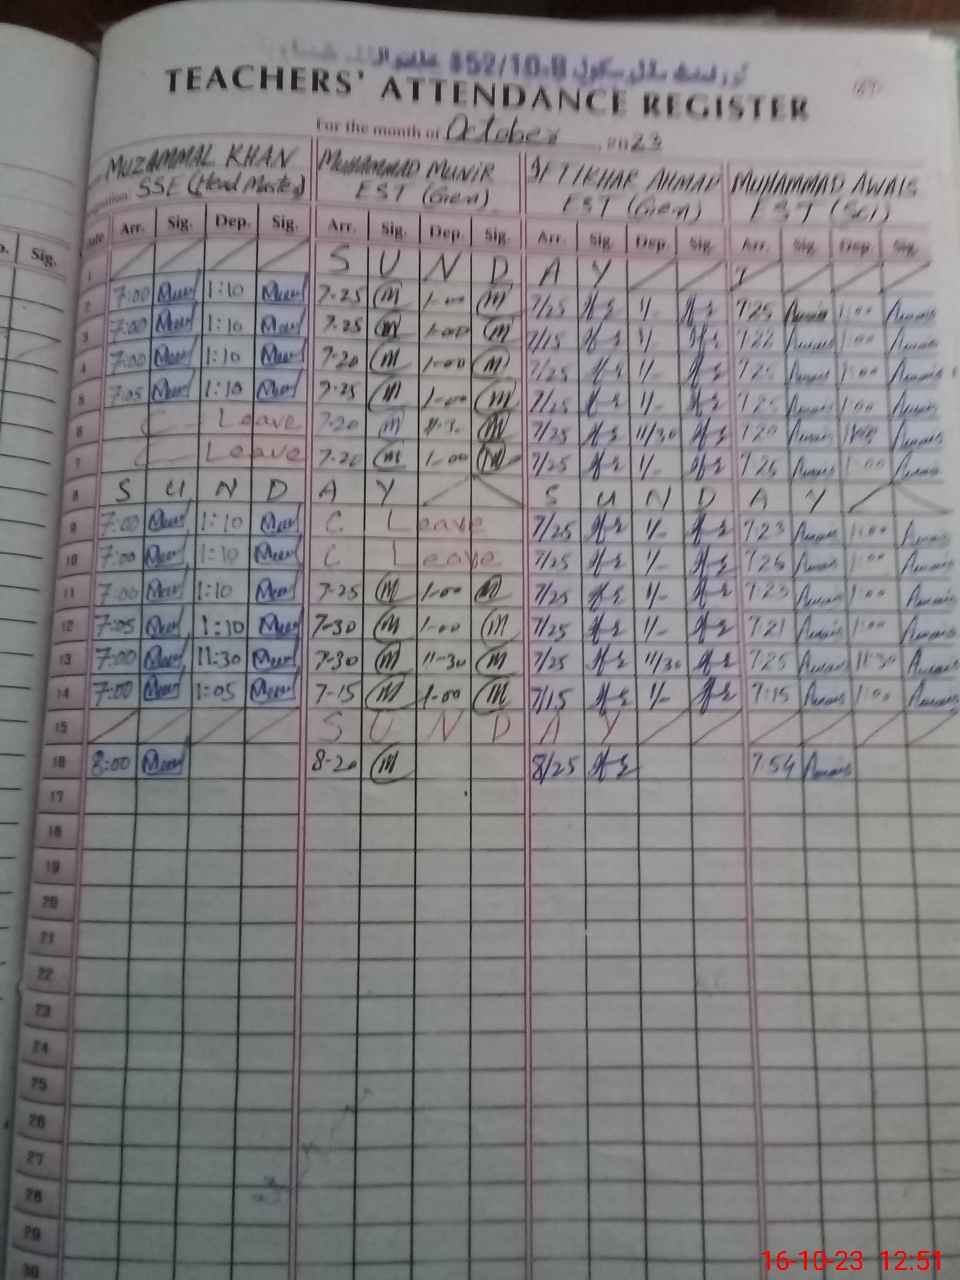 152/10-R
TEACHERS' ATTENDANCE REGISTER
For the month of October 2023
MUZAMMAL KHAN MUHAMMAD MUNIR IFTIKHAR AHMAD MUHAMMAD AWAIS
SSE (Head Master) EST (Gen) EST (Gen) EST (Sci)
Sig. Date Arr. Sig. Dep. Sig. Arr. Sig. Dep. Sig. Arr. Sig. Dep. Sig. Arr. Sig. Dep. Sig.
1 S U N D A Y
2 7:00 1:10 7-25 m 1-00 m 7/25 1/- 7:25 Awais 1:00 Awais
3 7:00 1:10 7-25 m 1-00 m 7/15 1/- 7:22 Awais 1:00 Awais
4 7:00 1:10 7-20 m 1-00 m 7/25 1/- 7:25 Awais 1:00 Awais
5 7:05 1:10 7-25 m 1-00 m 7/25 1/- 7:25 Awais 1:00 Awais
6 C Leave 7-20 m 11-30 m 7/25 11/30 7:20 Awais Awais
7 C Leave 7-20 m 1-00 m 7/25 1/- 7:25 Awais 1:00 Awais
8 S U N D A Y S U N D A Y
9 7:00 1:10 C Leave 7/25 1/- 7:23 Awais 1:00 Awais
10 7:00 1:10 C Leave 7/25 1/- 7:25 Awais 1:00 Awais
11 7:00 1:10 7-25 m 1-00 m 7/25 1/- 7:23 Awais 1:00 Awais
12 7:05 1:10 7-30 m 1-00 m 7/25 1/- 7:21 Awais 1:00 Awais
13 7:00 11:30 7-30 m 11-30 m 7/25 11/30 7:25 Awais 11:30 Awais
14 7:00 1:05 7-15 m 1-00 m 7/15 1/- 7:15 Awais 1:00 Awais
15 S U N D A Y
16 8:00 8-20 m 8/25 7:54 Awais
17
18
19
20
21
22
23
24
25
26
27
28
29
30
16-10-23 12:51